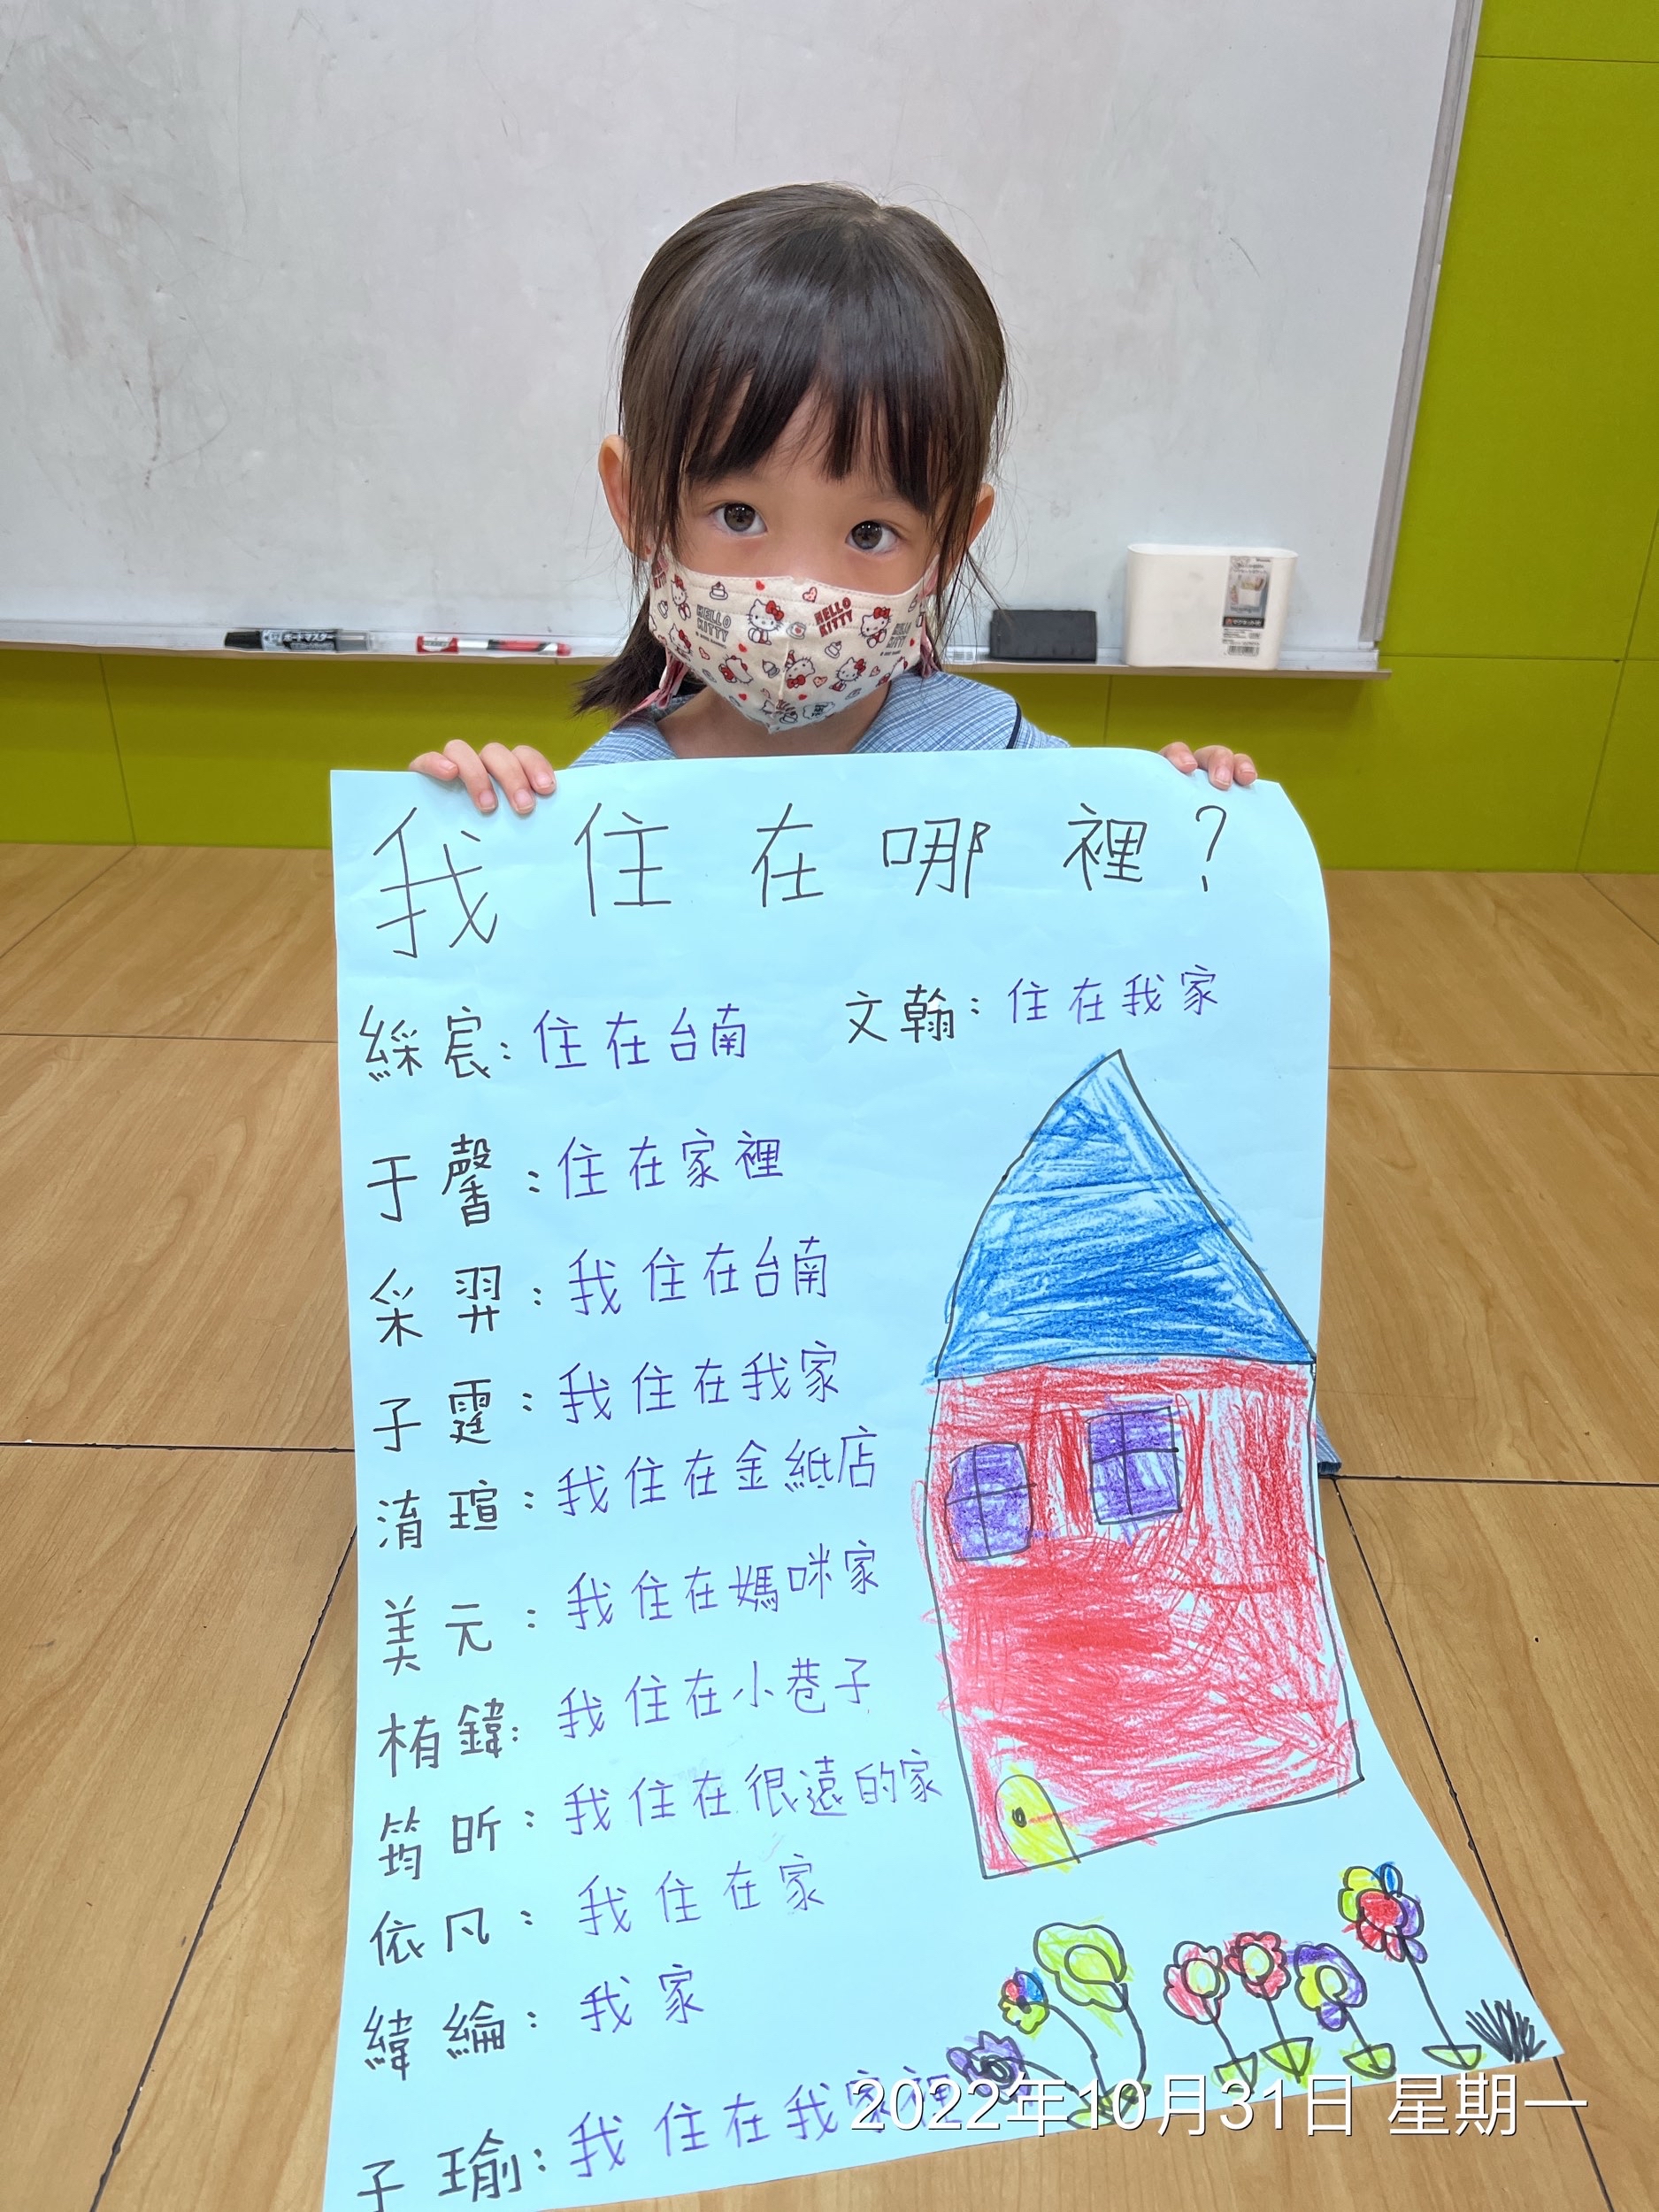 我住在哪裡?
綵宸:住在台南
文翰:住在我家
于馨:住在家裡
采羿:我住在台南
子霆:我住在我家
淯瑄:我住在金紙店
美元:我住在媽咪家
栯鍏:我住在小巷子
筠昕:我住在很遠的家
依凡:我住在家
緯綸:我家
子瑜:我住在我家裡
2022年10月31日 星期一
HELLO KITTY
HELLO KITTY
ボードマスター